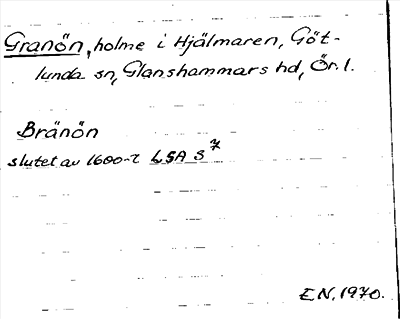 Granön, holme i Hjälmaren, Göt-
lunda sn, Glanshammars hd, Ör. l.
Bränön
slutet av 1600-t LSA S 7
E.N. 1970.